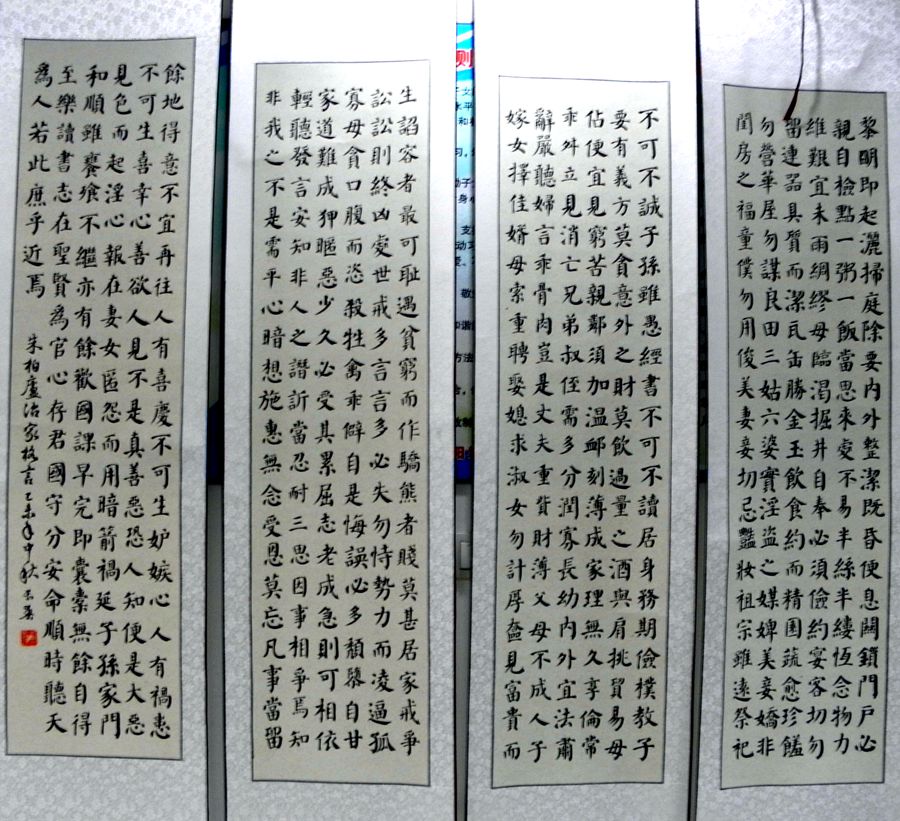 黎明即起灑掃庭除要內外整潔既昏便息關鎖門戶必
親自檢點一粥一飯當思來處不易半絲半縷恆念物力
維艱宜未雨綢繆毋臨渴掘井自奉必須儉約宴客切勿
留連器具質而潔瓦缶勝金玉飲食約而精園蔬愈珍饈
勿營華屋勿謀良田三姑六婆實淫盜之媒婢美妾嬌非
閨房之福童僕勿用俊美妻妾切忌豔妝祖宗雖遠祭祀
不可不誠子孫雖愚經書不可不讀居身務期儉樸教子
要有義方莫貪意外之財莫飲過量之酒與肩挑貿易毋
佔便宜見窮苦親鄰須加温卹刻薄成家理無久享倫常
乖舛立見消亡兄弟叔侄需多分潤寡長幼內外宜法肅
辭嚴聽婦言乖骨肉豈是丈夫重貲財薄父母不成人子
嫁女擇佳婿毋索重聘娶媳求淑女勿計厚奩見富貴而
生諂容者最可恥遇貧窮而作驕態者賤莫甚居家戒爭
訟訟則終凶處世戒多言言多必失勿恃勢力而凌逼孤
寡毋貪口腹而恣殺牲禽乖僻自是悔誤必多頹隳自甘
家道難成狎暱惡少久必受其累屈志老成急則可相依
輕聽發言安知非人之譖訴當忍耐三思因事相爭焉知
非我之不是需平心暗想施惠無念受恩莫忘凡事當留
餘地得意不宜再往人有喜慶不可生妒嫉心人有禍患
不可生喜幸心善欲人見不是真善惡恐人知便是大惡
見色而起淫心報在妻女匿怨而用暗箭禍延子孫家門
和順雖饔飧不繼亦有餘歡國課早完即囊橐無餘自得
至樂讀書志在聖賢為官心存君國守分安命順時聽天
為人若此庶乎近焉 朱柏廬治家格言 乙未年中秋